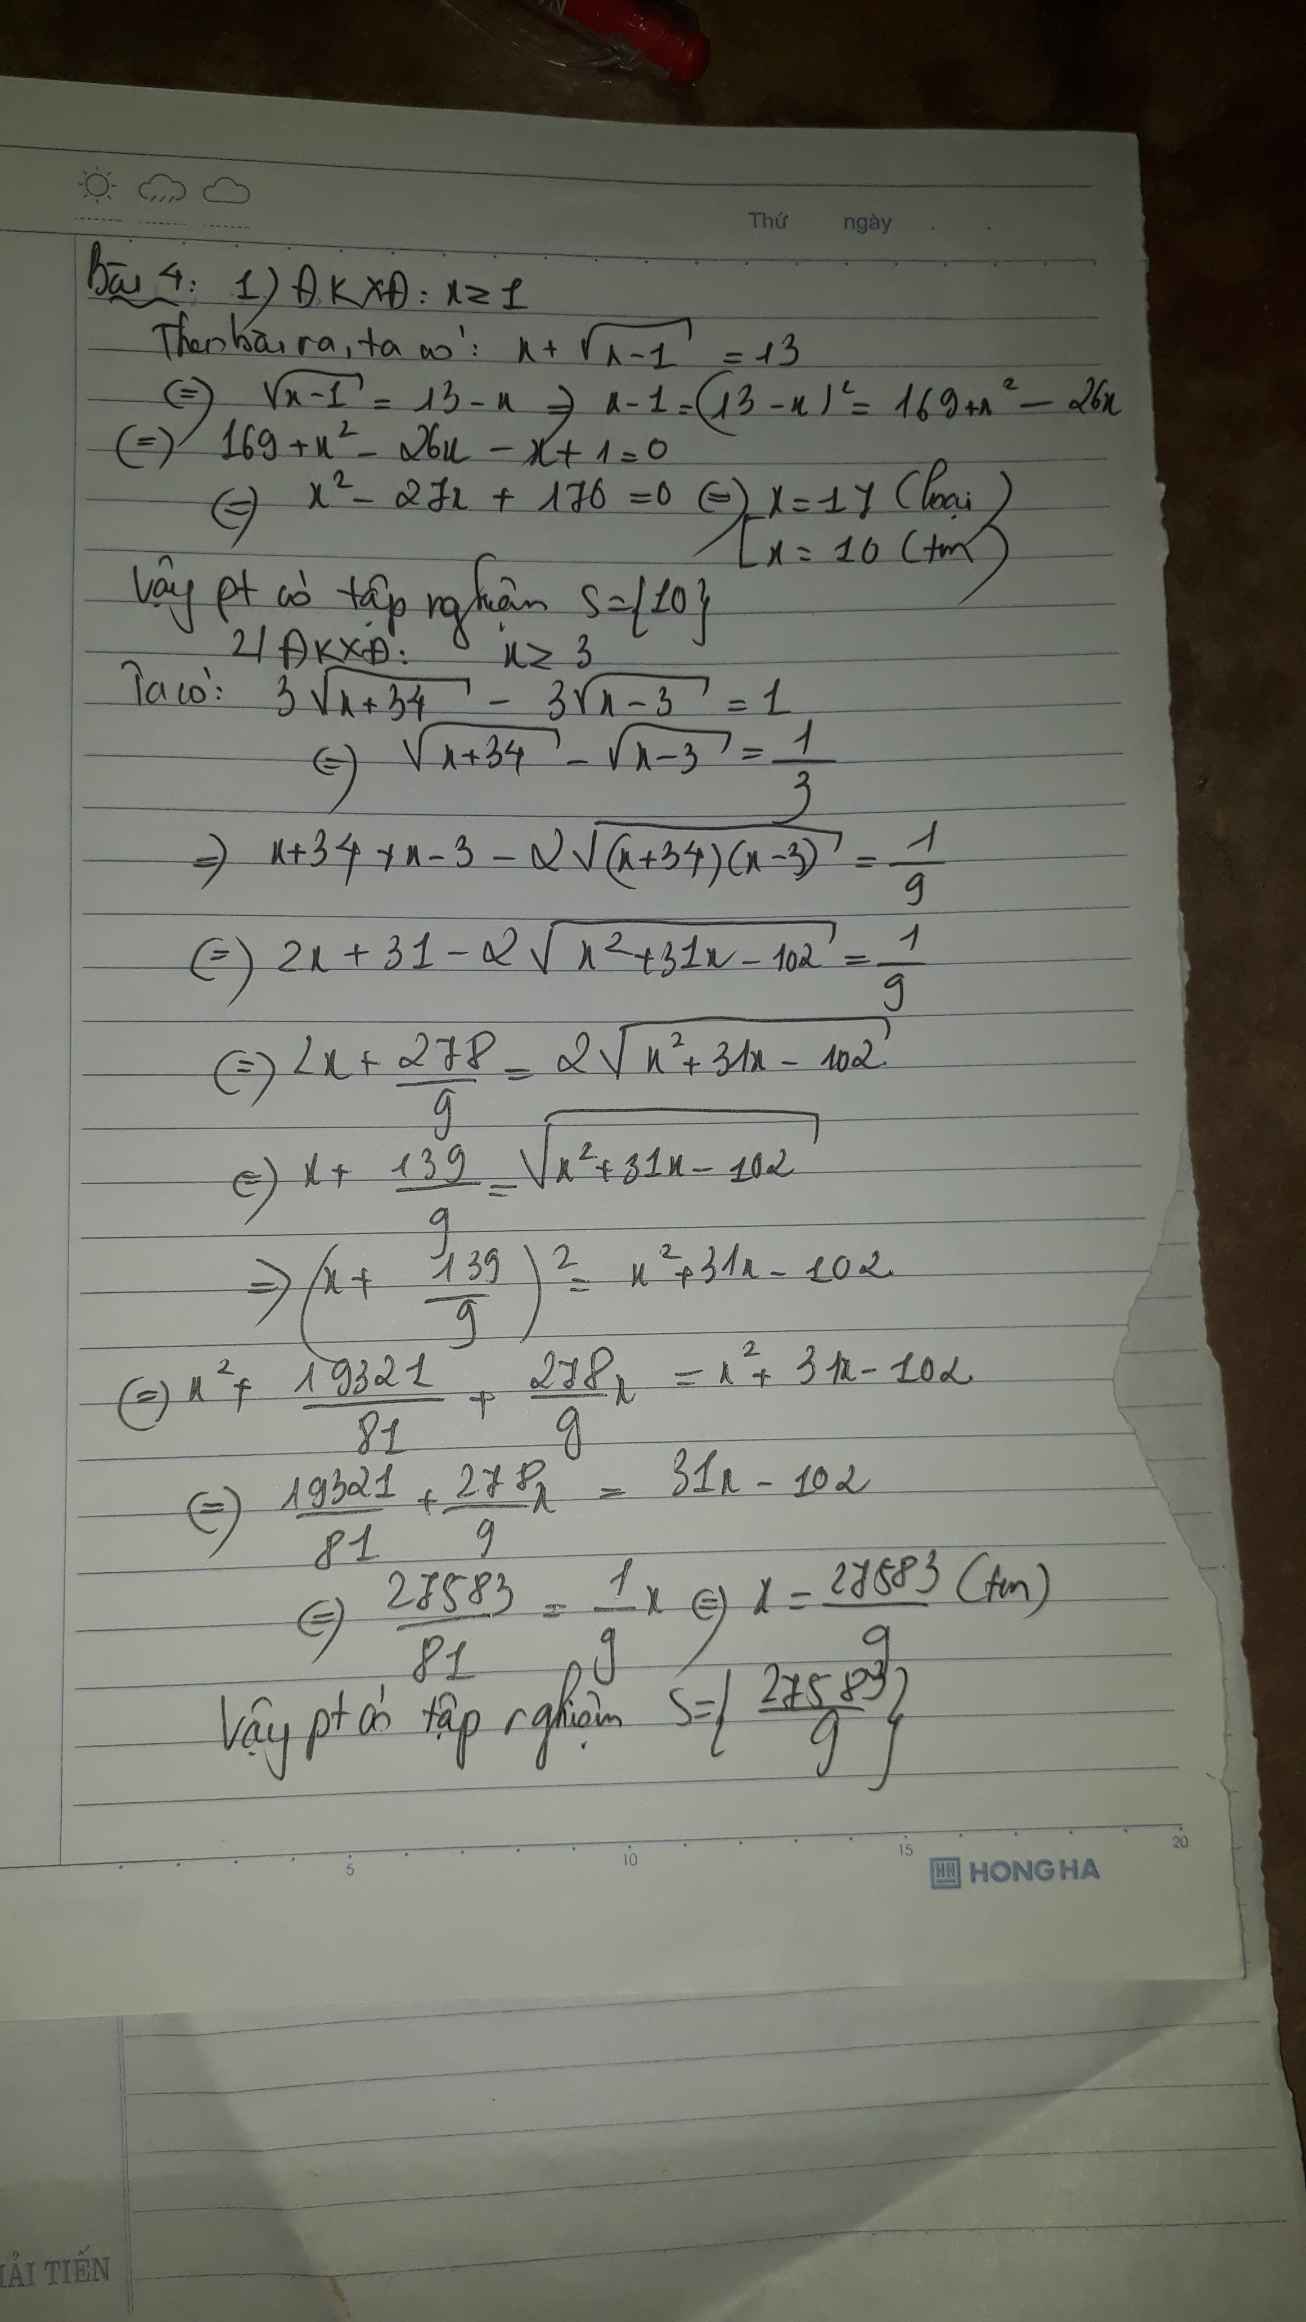 Thứ ngày
Bài 4: 1) ĐKXĐ: x ≥ 1
Theo bài ra, ta có: x + √(x-1) = 13
(=) √(x-1) = 13 - x => x - 1 = (13 - x)² = 169 + x² - 26x
(=) 169 + x² - 26x - x + 1 = 0
(=) x² - 27x + 170 = 0 (=) [ x = 17 (loại)
x = 10 (tm)
Vậy pt có tập nghiệm S = {10}
2) ĐKXĐ: x ≥ 3
Ta có: 3√(x+34) - 3√(x-3) = 1
(=) √(x+34) - √(x-3) = 1/3
=> x + 34 + x - 3 - 2√((x+34)(x-3)) = 1/9
(=) 2x + 31 - 2√(x² + 31x - 102) = 1/9
(=) 2x + 278/9 = 2√(x² + 31x - 102)
(=) x + 139/9 = √(x² + 31x - 102)
=> (x + 139/9)² = x² + 31x - 102
(=) x² + 19321/81 + 278/9 x = x² + 31x - 102
(=) 19321/81 + 278/9 x = 31x - 102
(=) 27583/81 = 1/9 x (=) x = 27583/9 (tm)
Vậy pt có tập nghiệm S = {27583/9}
5 10 15 20
HH HONG HA
IẢI TIẾN